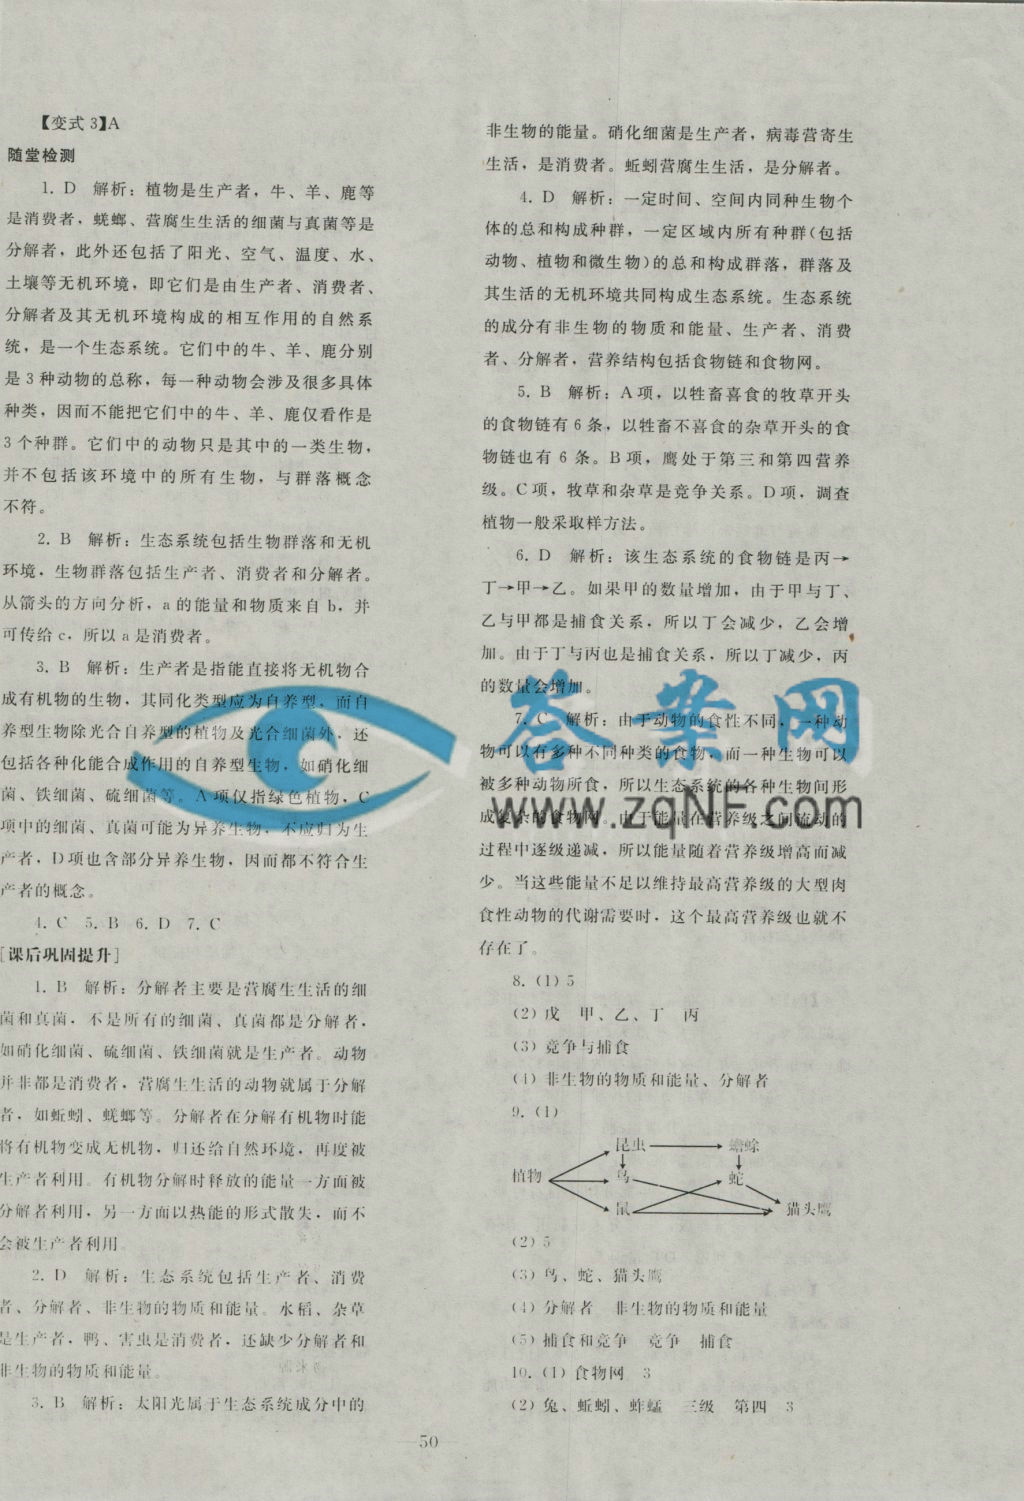 【变式 3】A
随堂检测
1. D 解析：植物是生产者，牛、羊、鹿等
是消费者，蜣螂、营腐生生活的细菌与真菌等是
分解者，此外还包括了阳光、空气、温度、水、
土壤等无机环境，即它们是由生产者、消费者、
分解者及其无机环境构成的相互作用的自然系
统，是一个生态系统。它们中的牛、羊、鹿分别
是 3 种动物的总称，每一种动物会涉及很多具体
种类，因而不能把它们中的牛、羊、鹿仅看作是
3 个种群。它们中的动物只是其中的一类生物，
并不包括该环境中的所有生物，与群落概念
不符。
2. B 解析：生态系统包括生物群落和无机
环境，生物群落包括生产者、消费者和分解者。
从箭头的方向分析，a 的能量和物质来自 b，并
可传给 c，所以 a 是消费者。
3. B 解析：生产者是指能直接将无机物合
成有机物的生物，其同化类型应为自养型，而自
养型生物除光合自养型的植物及光合细菌外，还
包括各种化能合成作用的自养型生物，如硝化细
菌、铁细菌、硫细菌等。A 项仅指绿色植物，C
项中的细菌、真菌可能为异养生物，不应归为生
产者，D 项也含部分异养生物，因而都不符合生
产者的概念。
4. C 5. B 6. D 7. C
[课后巩固提升]
1. B 解析：分解者主要是营腐生生活的细
菌和真菌，不是所有的细菌、真菌都是分解者，
如硝化细菌、硫细菌、铁细菌就是生产者。动物
并非都是消费者，营腐生生活的动物就属于分解
者，如蚯蚓、蜣螂等。分解者在分解有机物时能
将有机物变成无机物，归还给自然环境，再度被
生产者利用。有机物分解时释放的能量一方面被
分解者利用，另一方面以热能的形式散失，而不
会被生产者利用。
2. D 解析：生态系统包括生产者、消费
者、分解者、非生物的物质和能量。水稻、杂草
是生产者，鸭、害虫是消费者，还缺少分解者和
非生物的物质和能量。
3. B 解析：太阳光属于生态系统成分中的
非生物的能量。硝化细菌是生产者，病毒营寄生
生活，是消费者。蚯蚓营腐生生活，是分解者。
4. D 解析：一定时间、空间内同种生物个
体的总和构成种群，一定区域内所有种群(包括
动物、植物和微生物)的总和构成群落，群落及
其生活的无机环境共同构成生态系统。生态系统
的成分有非生物的物质和能量、生产者、消费
者、分解者，营养结构包括食物链和食物网。
5. B 解析：A 项，以牲畜喜食的牧草开头
的食物链有 6 条，以牲畜不喜食的杂草开头的食
物链也有 6 条。B 项，鹰处于第三和第四营养
级。C 项，牧草和杂草是竞争关系。D 项，调查
植物一般采取样方法。
6. D 解析：该生态系统的食物链是丙→
丁→甲→乙。如果甲的数量增加，由于甲与丁、
乙与甲都是捕食关系，所以丁会减少，乙会增
加。由于丁与丙也是捕食关系，所以丁减少，丙
的数量会增加。
7. C 解析：由于动物的食性不同，一种动
物可以有多种不同种类的食物，而一种生物可以
被多种动物所食，所以生态系统的各种生物间形
成复杂的食物网。由于能量在营养级之间流动的
过程中逐级递减，所以能量随着营养级增高而减
少。当这些能量不足以维持最高营养级的大型肉
食性动物的代谢需要时，这个最高营养级也就不
存在了。
8. (1) 5
(2) 戊 甲、乙、丁 丙
(3) 竞争与捕食
(4) 非生物的物质和能量、分解者
9. (1)
昆虫 蟾蜍
植物 鸟 蛇
鼠 猫头鹰
(2) 5
(3) 鸟、蛇、猫头鹰
(4) 分解者 非生物的物质和能量
(5) 捕食和竞争 竞争 捕食
10. (1) 食物网 3
(2) 兔、蚯蚓、蚱蜢 三级 第四 3
50
答案网
www.zqNF.com